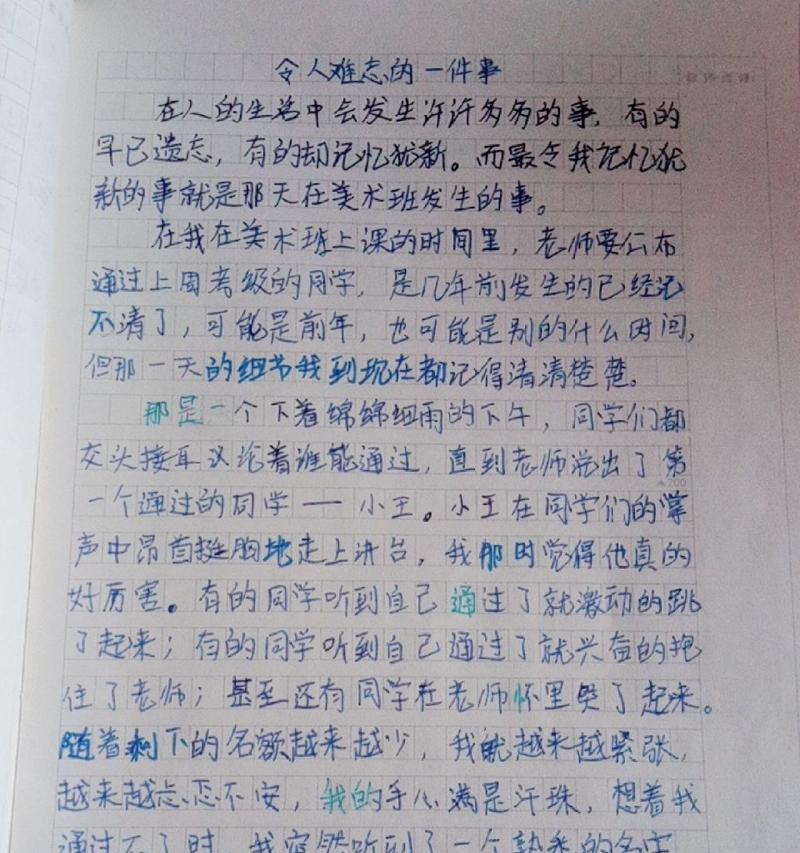 令人难忘的一件事
在人的生活中会发生许许多多的事，有的
早已遗忘，有的却记忆犹新。而最令我记忆犹
新的事就是那天在美术班发生的事。
在我在美术班上课的时间里，老师要公布
通过上周考级的同学，是几年前发生的已经记
不清了，可能是前年，也可能是别的什么时间，
但那一天的细节我到现在都记得清清楚楚。
那是一个下着绵绵细雨的下午，同学们都
交头接耳议论着谁能通过，直到老师说出了第
200
一个通过的同学——小王。小王在同学们的掌
声中昂首挺胸地走上讲台，我那时觉得他真的
好厉害。有的同学听到自己通过了就激动的跳
了起来；有的同学听到自己通过了就兴奋的抱
住了老师；甚至还有同学在老师怀里哭了起来。
随着剩下的名额越来越少，我就越来越紧张，
越来越忐忑不安，我的手心满是汗珠，想着我
通过不了时，我突然听到了一个熟悉的名字